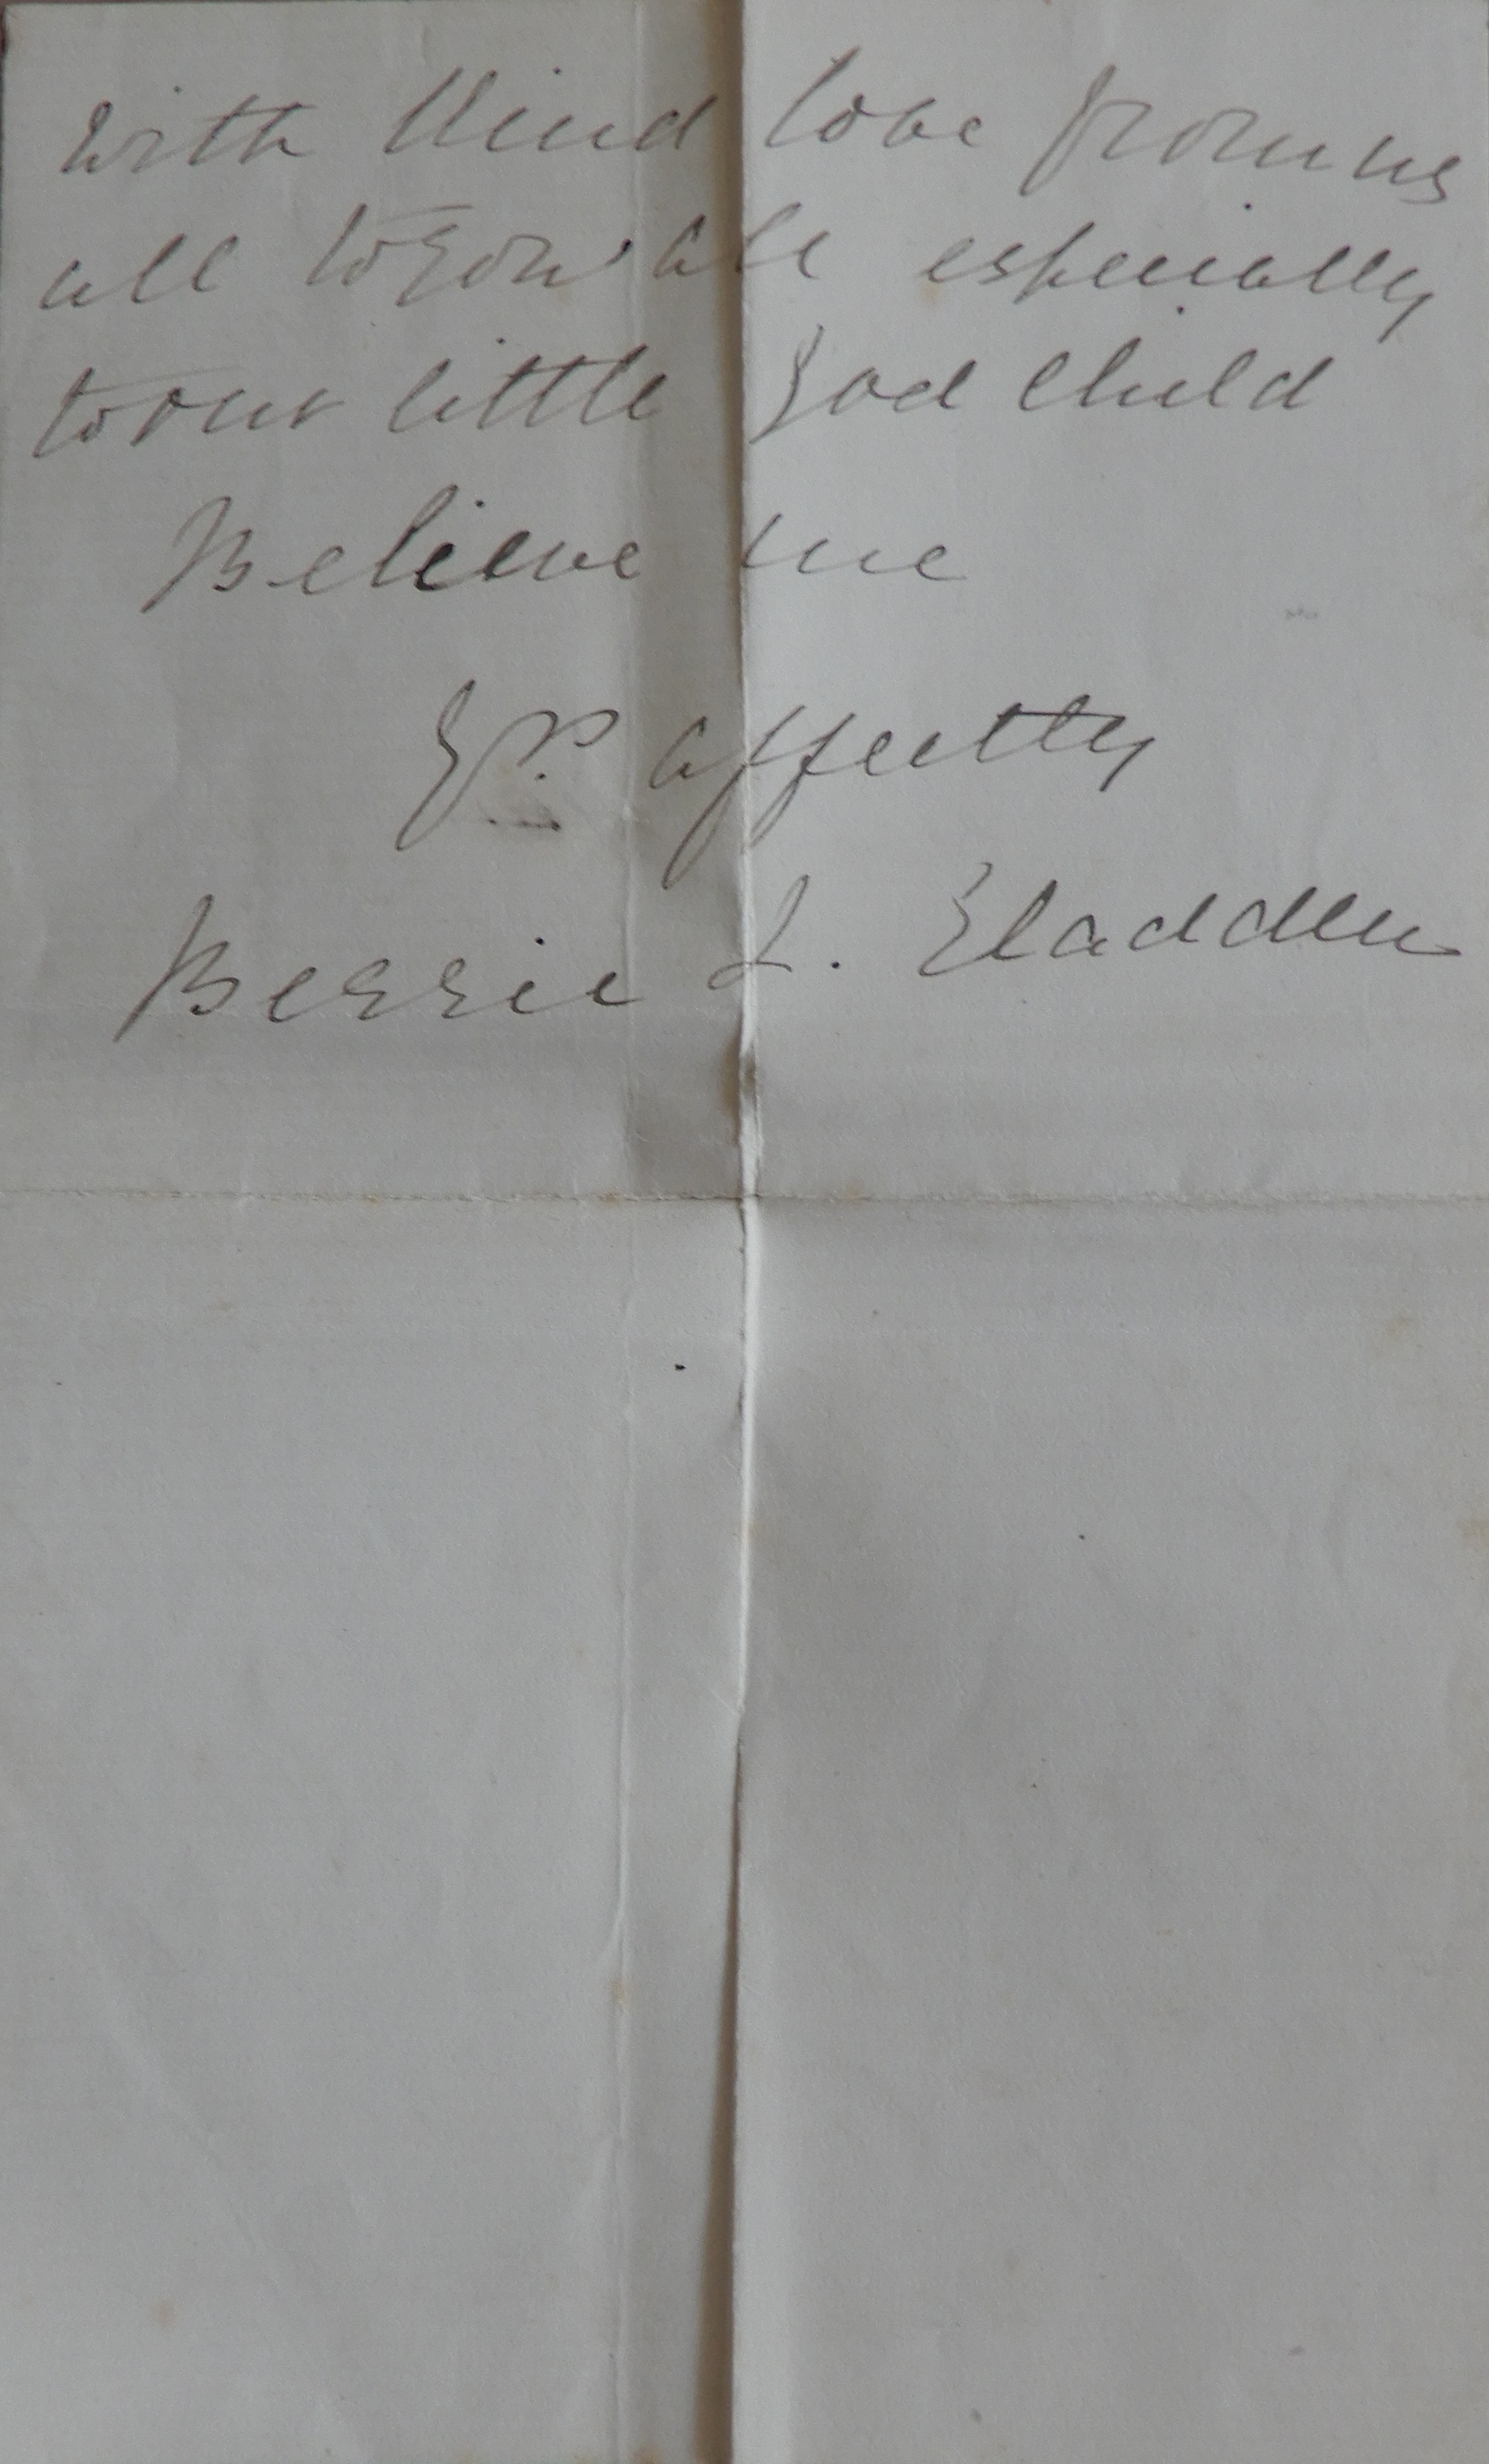 with kind love from us
all to you all especially
to our little God child
Believe me
Yrs affectly
Bessie L. Gladdew